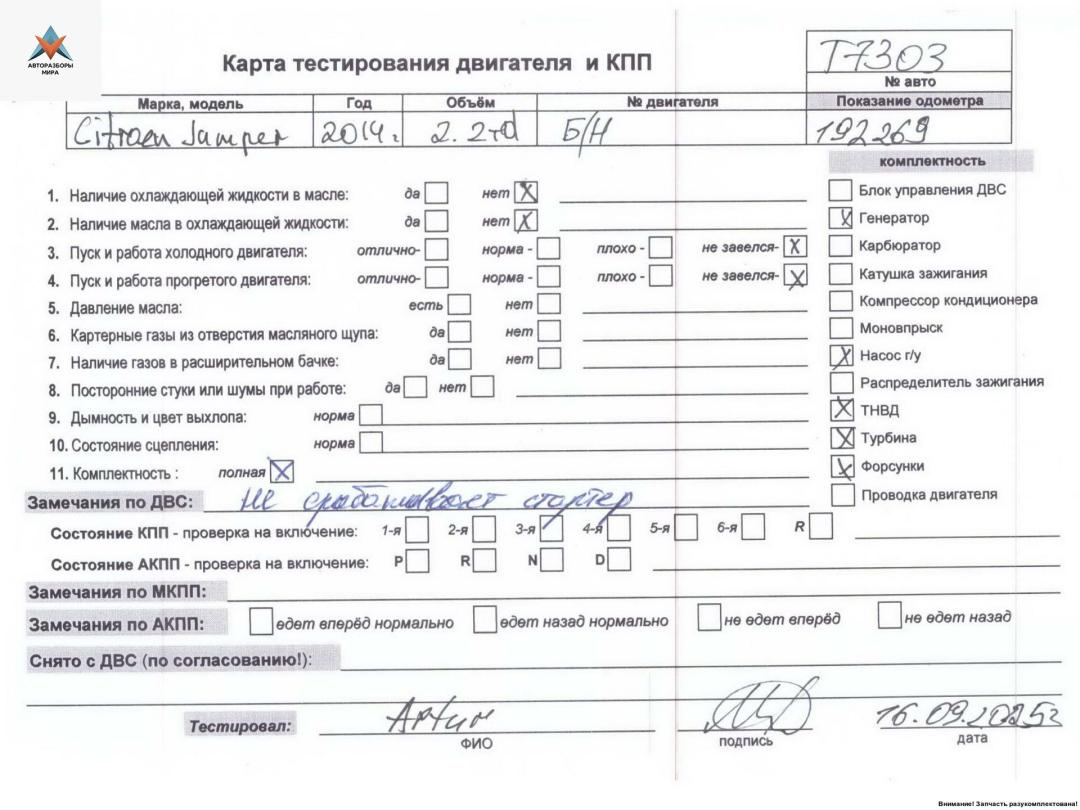 АВТОРАЗБОРЫ
МИРА
Карта тестирования двигателя и КПП
T7303
№ авто
Марка, модель Год Объём № двигателя Показание одометра
Citroen Jumper 2014г 2.2td Б/Н 192269
комплектность
1. Наличие охлаждающей жидкости в масле: да нет X
Блок управления ДВС
2. Наличие масла в охлаждающей жидкости: да нет X
X Генератор
3. Пуск и работа холодного двигателя: отлично- норма - плохо - не завелся- X
Карбюратор
4. Пуск и работа прогретого двигателя: отлично- норма - плохо - не завелся- X
Катушка зажигания
5. Давление масла: есть нет
Компрессор кондиционера
6. Картерные газы из отверстия масляного щупа: да нет
Моновпрыск
7. Наличие газов в расширительном бачке: да нет
X Насос г/у
8. Посторонние стуки или шумы при работе: да нет
Распределитель зажигания
9. Дымность и цвет выхлопа: норма
X ТНВД
10. Состояние сцепления: норма
X Турбина
11. Комплектность : полная X
X Форсунки
Замечания по ДВС: не срабатывает стартер
Проводка двигателя
Состояние КПП - проверка на включение: 1-я 2-я 3-я 4-я 5-я 6-я R
Состояние АКПП - проверка на включение: P R N D
Замечания по МКПП:
Замечания по АКПП: едет вперёд нормально едет назад нормально не едет вперёд не едет назад
Снято с ДВС (по согласованию!):
Тестировал: 16.09.2025г
ФИО подпись дата
Внимание! Запчасть разукомплектована!